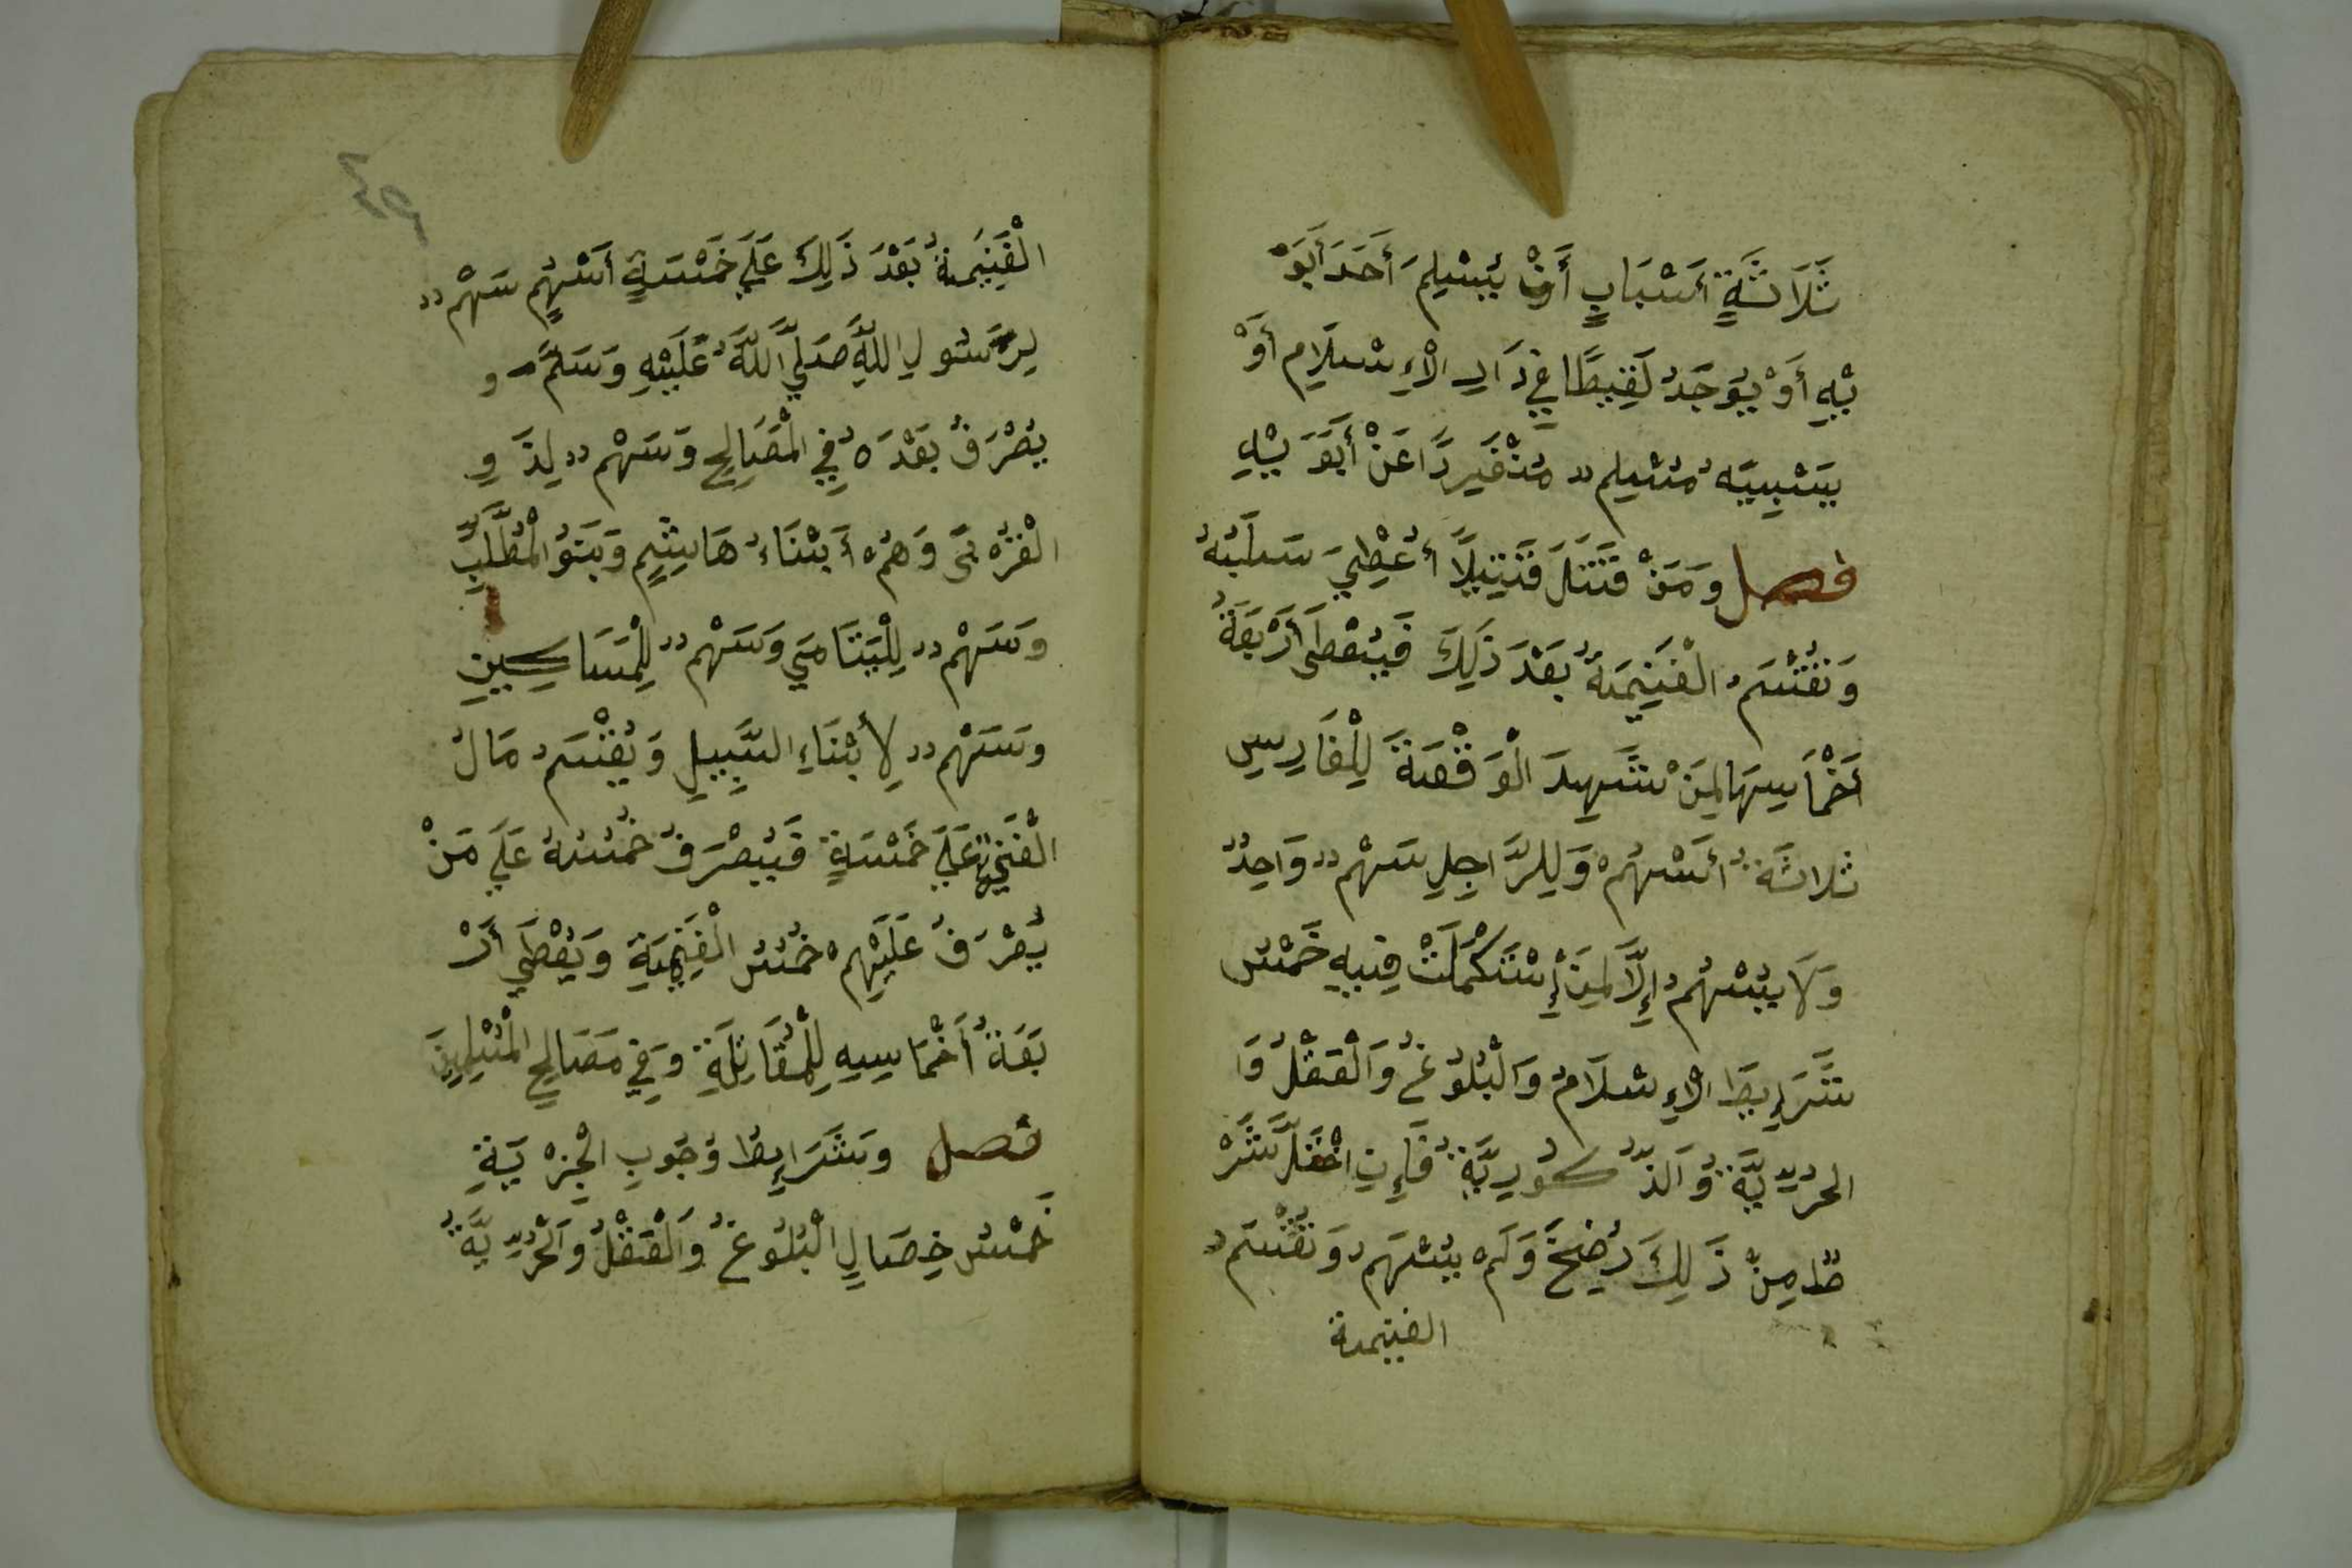 ثَلَاثَةِ أَسْبَابٍ أَنْ يُسْلِمَ أَحَدَ أَبَوَ
يْهِ أَوْ يُوجَدُ لَقِيطًا فِي دَارِ الْإِسْلَامِ أَوْ
يَسْبِيَهُ مُسْلِمٌ مُنْفَرِدًا عَنْ أَبَوَيْهِ
فصل وَمَنْ قَتَلَ قَتِيلًا أُعْطِيَ سَلَبُهُ
وَتُقْسَمُ الْغَنِيمَةُ بَعْدَ ذَلِكَ فَيُعْطَى أَرْبَعَةُ
أَخْمَاسِهَا لِمَنْ شَهِدَ الْوَقْعَةَ لِلْفَارِسِ
ثَلَاثَةُ أَسْهُمْ وَلِلرَّاجِلِ سَهْمٌ وَاحِدٌ
وَلَا يُسْهُمُ إِلَّا لِمَنْ إِسْتَكْمَلَتْ فِيهِ خَمْسُ
شَرَايِطَ الْإِسْلَامُ وَالْبُلُوغُ وَالْعَقْلُ وَا
لحُرِّيَّةُ وَالذُّكُورِيَّةُ فَإِنِ اخْتَلَّ شَرْ
طٌ مِنْ ذَلِكَ رُضِخَ وَلَمْ يُسْهَمْ وَتُقْسَمُ
الغنيمة
الْغَنِيمَةُ بَعْدَ ذَلِكَ عَلَي خَمْسَةِ أَسْهُمٍ سَهْمٌ
لِرَسُولِ اللَّهِ صَلَّي اللَّهُ عَلَيْهِ وَسَلَّمَ و
يُصْرَفُ بَعْدَهُ فِي الْمَصَالِحِ وَسَهْمٌ لِذَوِ
الْقُرْبَى وَهُمْ أَبْنَاءُ هَاشِمٍ وَبَنُو الْمُطَّلِبِ
وَسَهْمٌ لِلْيَتَامَي وَسَهْمٌ لِلْمَسَاكِينِ
وَسَهْمٌ لِأَبْنَاءِ السَّبِيلِ وَيُقْسَمُ مَالُ
الْفَيْءِ عَلَي خَمْسَةٍ فَيُصْرَفُ خُمُسُهُ عَلَي مَنْ
يُصْرَفُ عَلَيْهِمْ خُمُسُ الْغَنِيمَةِ وَيُعْطَي أَرْ
بَعَةُ أَخْمَاسِهِ لِلْمُقَاتِلَةِ وَفِي مَصَالِحِ الْمُسْلِمِينَ
فصل وَشَرَايِطُ وُجُوبِ الْجِزْيَةِ
خَمْسُ خِصَالٍ الْبُلُوغُ وَالْعَقْلُ وَالْحُرِّيَّةُ